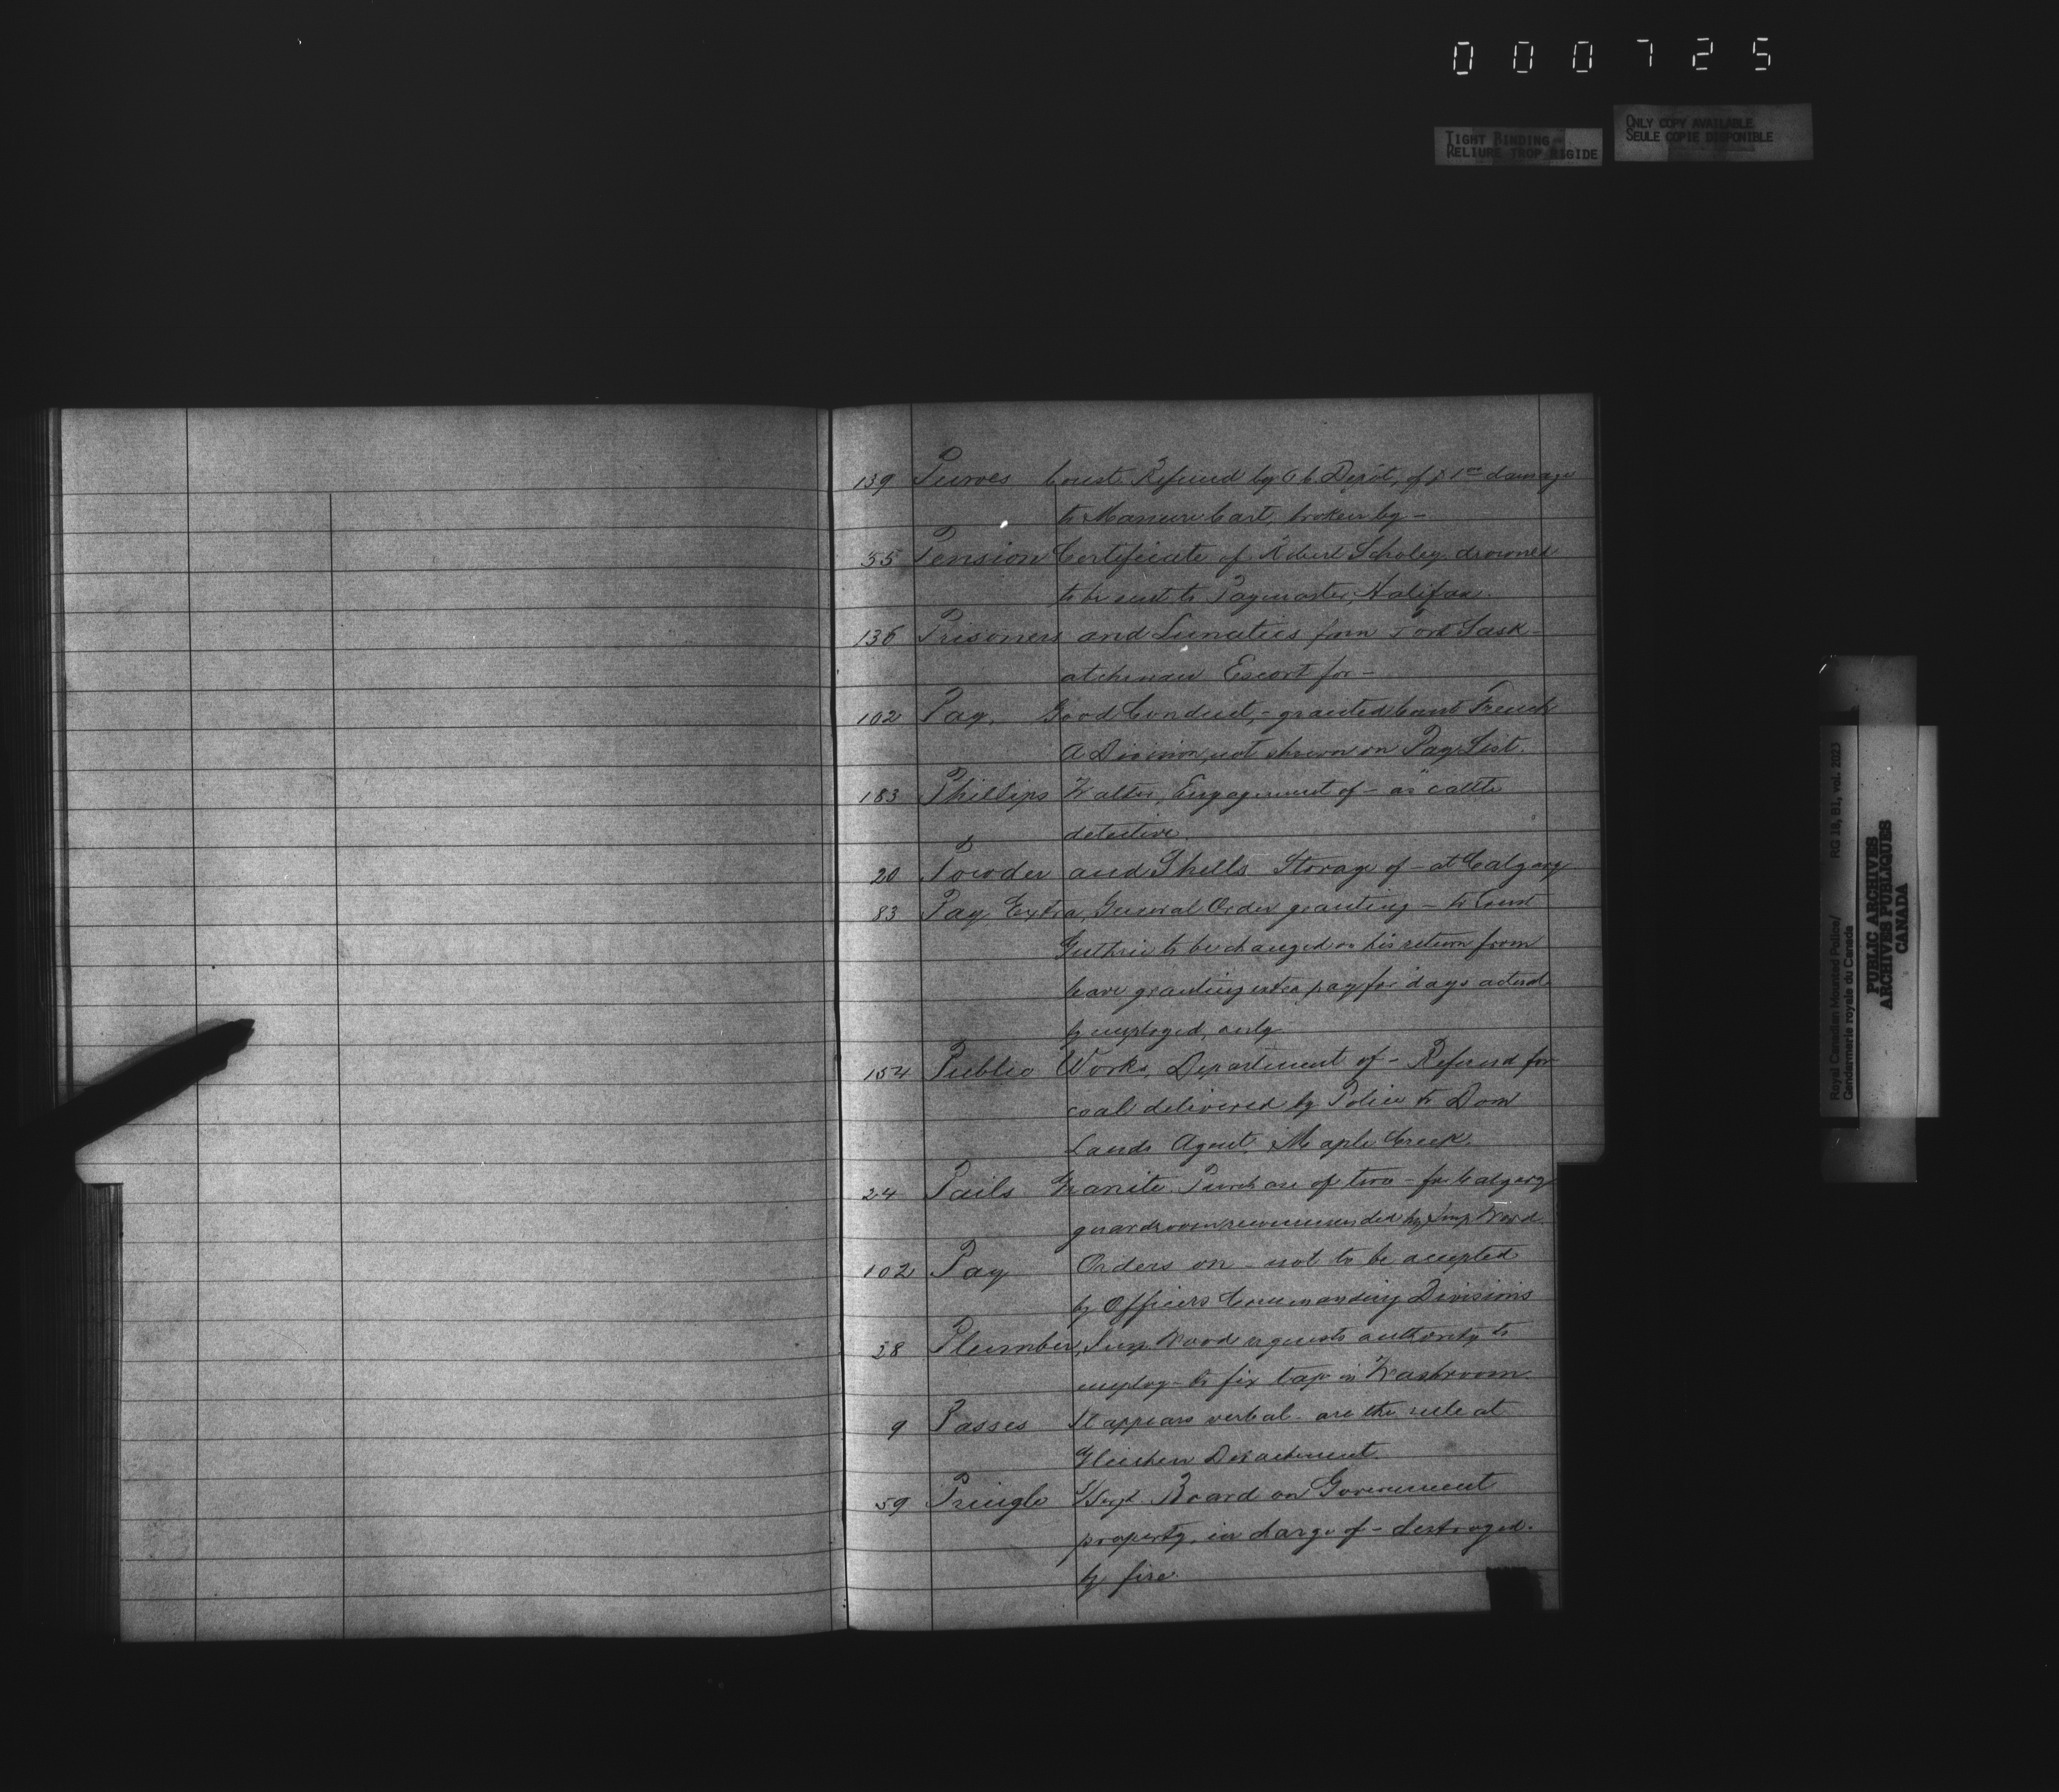 000725
TIGHT BINDING
RELIURE TROP RIGIDE
ONLY COPY AVAILABLE
SEULE COPIE DISPONIBLE
139 Purves Const. Refund by of damage
to Manure Cart, broken by -
55 Pension Certificate of Robert Scholey drowned
to be sent to Paymaster, Halifax.
136 Prisoners and Lunatics from Fort Sask-
atchewan Escort for -
102 Pay, Good Conduct, - granted Const French
A Division, not shown on Pay List.
183 Phillips Walter, Engagement of - as cattle
detective
20 Powder and Shells Storage of - at Calgary
83 Pay Extra, General Order granting - to Const
Guthrie to be changed on his return from
leave granting extra pay for days actual
ly employed, only -
154 Public Works, Department of - Refund for
coal delivered by Police to Dom
Lands Agent, Maple Creek.
24 Pails Granite Purchase of two - for Calgary
guardroom recommended by Insp Wood.
102 Pay Orders on - not to be accepted
by Officers Commanding Divisions
28 Plumber, Insp. Wood requests authority to
employ - to fix tap in Washroom.
9 Passes It appears verbal - are the rule at
Gleichen Detachment.
59 Pringle S/Sergt. Board on Government
property, in charge of - destroyed.
by fire.
Royal Canadian Mounted Police/
Gendarmerie royale du Canada
RG 18, B1, vol. 2023
PUBLIC ARCHIVES
ARCHIVES PUBLIQUES
CANADA